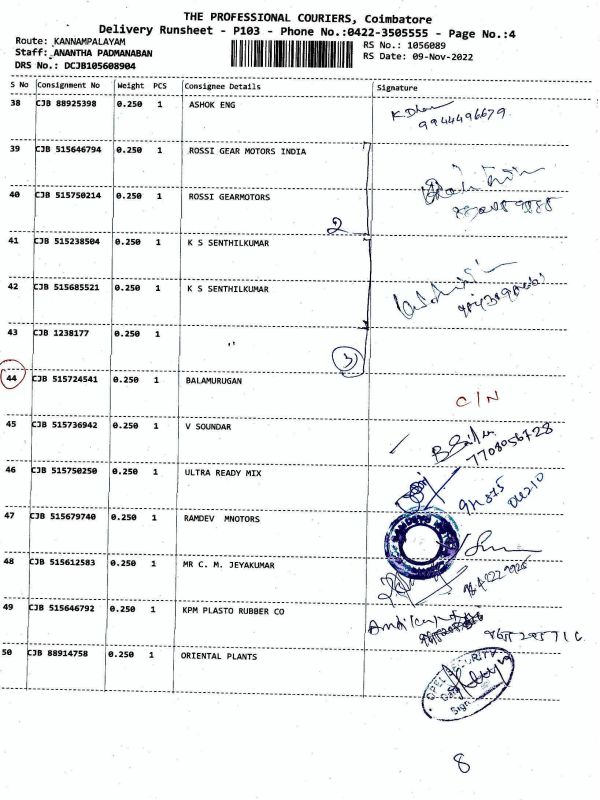 THE PROFESSIONAL COURIERS, Coimbatore
Delivery Runsheet - P103 - Phone No.:0422-3505555 - Page No.:4
Route: KANNAMPALAYAM
RS No.: 1056089
Staff: ANANTHA PADMANABAN
RS Date: 09-Nov-2022
DRS No.: DCJB105608904
S No Consignment No Weight PCS Consignee Details Signature
38 CJB 88925398 0.250 1 ASHOK ENG
9944496679
39 CJB 515646794 0.250 1 ROSSI GEAR MOTORS INDIA
40 CJB 515750214 0.250 1 ROSSI GEARMOTORS
2
41 CJB 515238504 0.250 1 K S SENTHILKUMAR
42 CJB 515685521 0.250 1 K S SENTHILKUMAR
43 CJB 1238177 0.250 1 "
3
44 CJB 515724541 0.250 1 BALAMURUGAN
C/N
45 CJB 515736942 0.250 1 V SOUNDAR
7708056728
46 CJB 515750250 0.250 1 ULTRA READY MIX
47 CJB 515679740 0.250 1 RAMDEV MNOTORS
48 CJB 515612583 0.250 1 MR C. M. JEYAKUMAR
49 CJB 515646792 0.250 1 KPM PLASTO RUBBER CO
50 CJB 88914758 0.250 1 ORIENTAL PLANTS
SECURITY
Sign
8